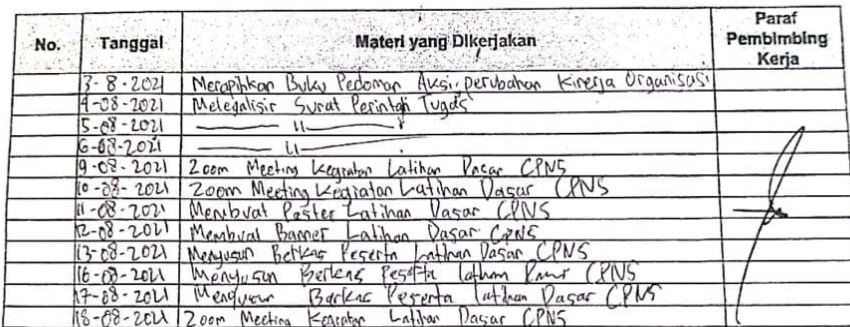 No. Tanggal Materi yang Dikerjakan Paraf Pembimbing Kerja
3-8-2021 Merapihkan Buku Pedoman Aksi perubahan Kinerja Organisasi
4-08-2021 Melegalisir Surat Perintah Tugas
5-08-2021 —— 11 ——
6-08-2021 —— 11 ——
9-08-2021 Zoom Meeting Kegiatan Latihan Dasar CPNS
10-08-2021 Zoom Meeting Kegiatan Latihan Dasar CPNS
11-08-2021 Membuat Poster Latihan Dasar CPNS
12-08-2021 Membuat Banner Latihan Dasar CPNS
13-08-2021 Menyusun Berkas Peserta Latihan Dasar CPNS
16-08-2021 Menyusun Berkas Peserta Latihan Dasar CPNS
17-08-2021 Menyusun Berkas Peserta Latihan Dasar CPNS
18-08-2021 Zoom Meeting Kegiatan Latihan Dasar CPNS